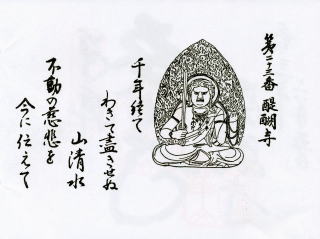 第二十三番 醍醐寺
千年経て
わきて盡きせぬ
山清水
不動の慈悲を
今に伝えて